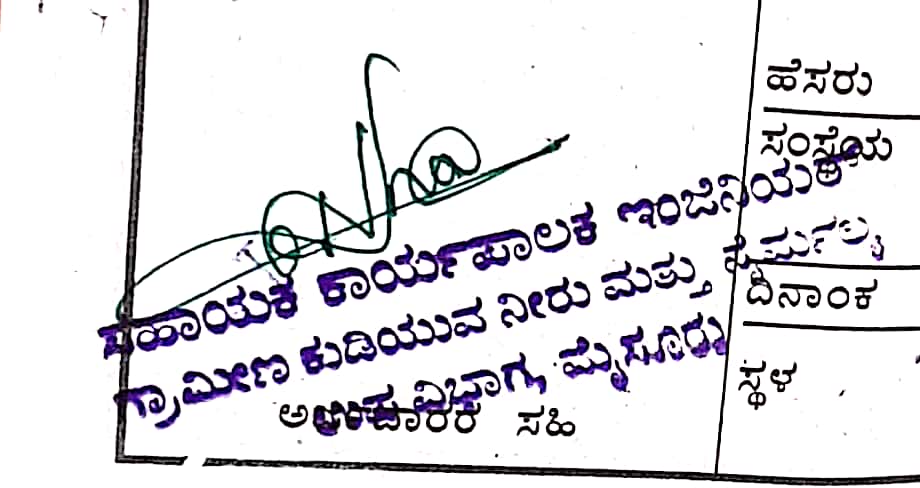 ಹೆಸರು
ಸಂಸ್ಥೆಯ
ಸಹಾಯಕ ಕಾರ್ಯಪಾಲಕ ಇಂಜಿನಿಯರ್
ಗ್ರಾಮೀಣ ಕುಡಿಯುವ ನೀರು ಮತ್ತು ನೈರ್ಮಲ್ಯ
ಉಪ ವಿಭಾಗ, ಮೈಸೂರು
ಸಹಿ
ದಿನಾಂಕ
ಸ್ಥಳ